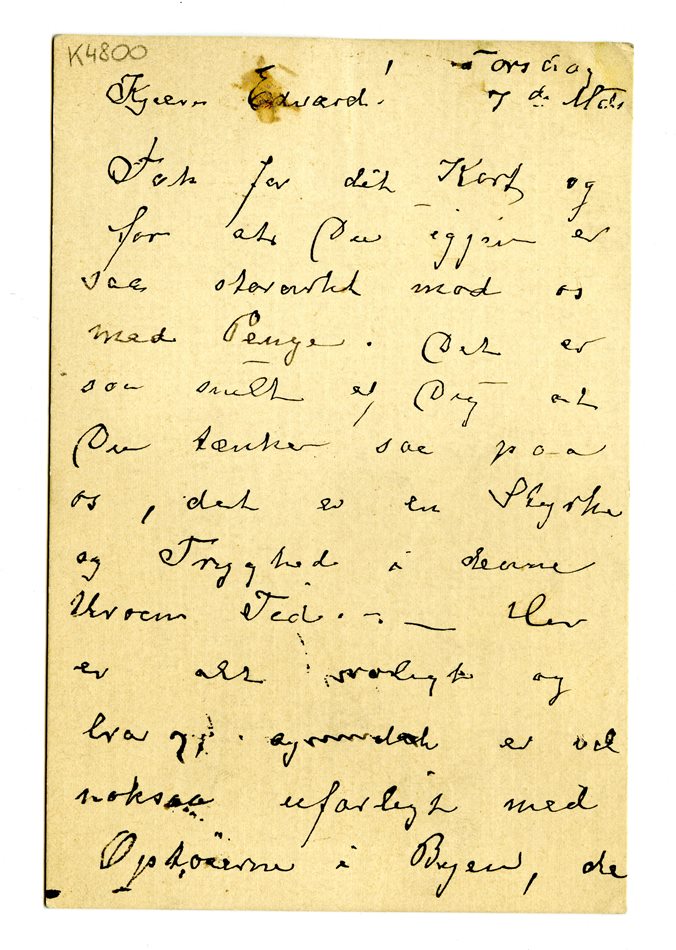 K4800
Torsdag
Kjære Edvard! 7de Mds
Tak for dit Kort og
for at Du igjen er
saa storartet mod os
med Penge. Det er
saa snilt af Dig at
Du tænker saa paa
os, det er en Styrke
og Tryghed i denne
Tid. — Her
er alt roligt og
bra er vel
noksaa ufarligt med
Optöierne i Byen, de